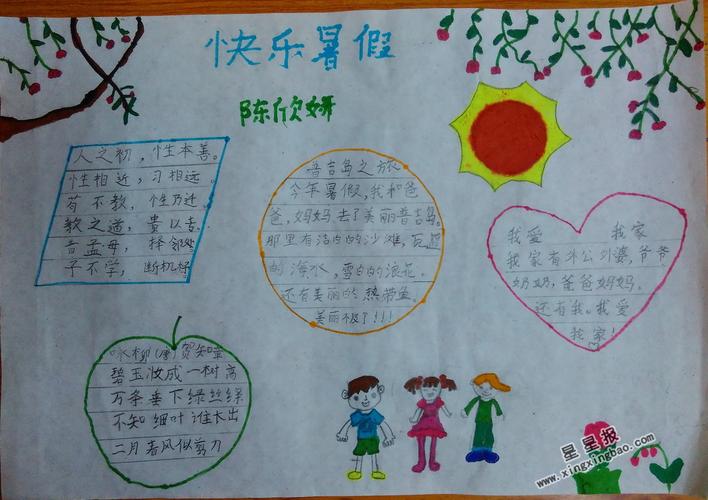 快乐暑假
陈欣妍
人之初，性本善。
性相近，习相远。
苟不教，性乃迁
教之道，贵以专
昔孟母，择邻处
子不学，断机杼
普吉岛之旅
今年暑假，我和爸
爸，妈妈去了美丽普吉岛。
那里有洁白的沙滩，瓦蓝
的海水，雪白的浪花。
还有美丽的热带鱼。
美丽极了!!!
我爱 我家
我家有外公外婆，爷爷
奶奶，爸爸妈妈。
还有我。我爱
我家!
咏柳(唐)贺知章
碧玉妆成一树高
万条垂下绿丝绦
不知细叶谁裁出
二月春风似剪刀
星星报
www.xingxingbao.com